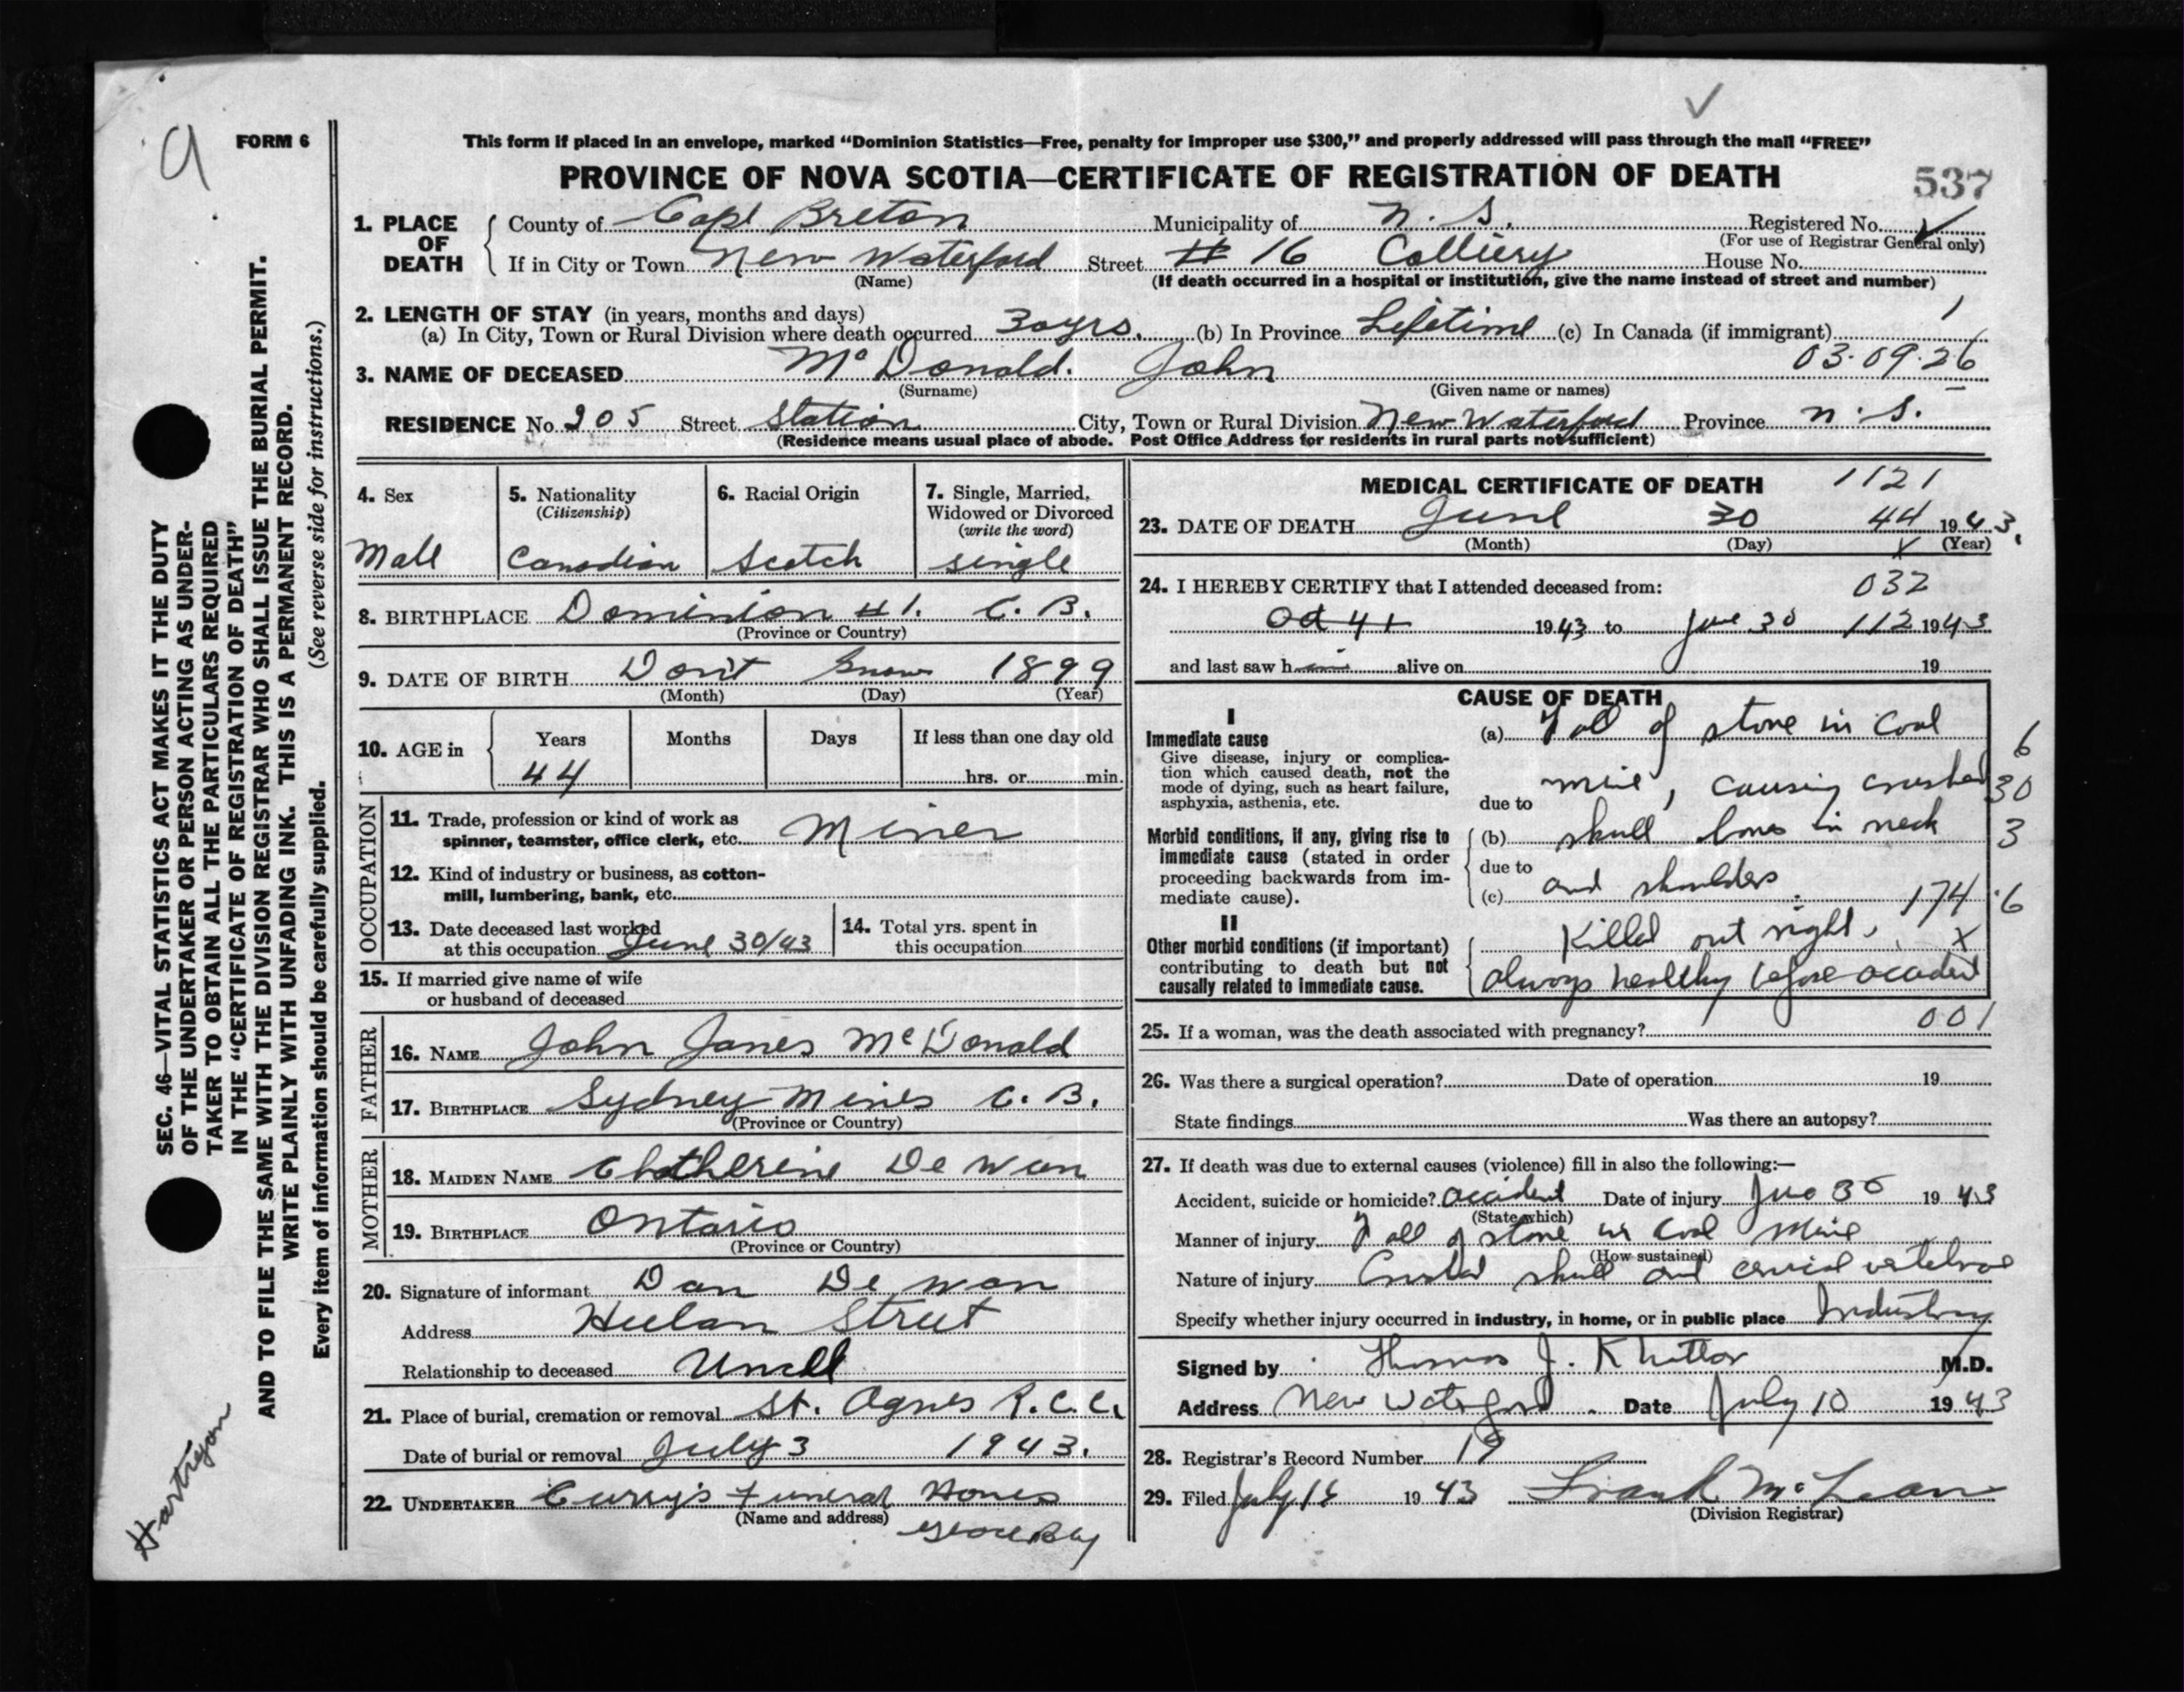 9
FORM 6
This form if placed in an envelope, marked "Dominion Statistics—Free, penalty for improper use $300," and properly addressed will pass through the mail "FREE"
PROVINCE OF NOVA SCOTIA—CERTIFICATE OF REGISTRATION OF DEATH
537
1. PLACE OF DEATH
County of Cape Breton Municipality of N. S. Registered No.
(For use of Registrar General only)
If in City or Town New Waterford Street # 16 Colliery House No.
(Name) (If death occurred in a hospital or institution, give the name instead of street and number)
2. LENGTH OF STAY (in years, months and days)
(a) In City, Town or Rural Division where death occurred 30 yrs. (b) In Province Lifetime (c) In Canada (if immigrant) 1
03-09-26
3. NAME OF DECEASED McDonald. John
(Surname) (Given name or names)
RESIDENCE No. 205 Street Station City, Town or Rural Division New Waterford Province N. S.
(Residence means usual place of abode. Post Office Address for residents in rural parts not sufficient)
4. Sex
Male
5. Nationality
(Citizenship)
Canadian
6. Racial Origin
Scotch
7. Single, Married, Widowed or Divorced
(write the word)
single
8. BIRTHPLACE Dominion #1. C. B.
(Province or Country)
9. DATE OF BIRTH Don't know 1899
(Month) (Day) (Year)
10. AGE in
Years Months Days If less than one day old
44 hrs. or min.
OCCUPATION
11. Trade, profession or kind of work as
spinner, teamster, office clerk, etc. Miner
12. Kind of industry or business, as cotton-
mill, lumbering, bank, etc.
13. Date deceased last worked
at this occupation June 30/43
14. Total yrs. spent in
this occupation
15. If married give name of wife
or husband of deceased
FATHER
16. NAME John James McDonald
17. BIRTHPLACE Sydney Mines C. B.
(Province or Country)
MOTHER
18. MAIDEN NAME Chatherine De Wan
19. BIRTHPLACE Ontario
(Province or Country)
20. Signature of informant Dan De wan
Address Heelan Street
Relationship to deceased Uncle
21. Place of burial, cremation or removal St. Agnes R. C. C.
Date of burial or removal July 3 1943.
22. UNDERTAKER Curry's Funeral Homes
(Name and address) Glace Bay
MEDICAL CERTIFICATE OF DEATH 1121
23. DATE OF DEATH June 30 44 1943.
(Month) (Day) (Year)
24. I HEREBY CERTIFY that I attended deceased from: 032
1943 to June 30 112 1943
and last saw h alive on 19
CAUSE OF DEATH
I
Immediate cause
Give disease, injury or complica-
tion which caused death, not the
mode of dying, such as heart failure,
asphyxia, asthenia, etc.
(a) Fall of stone in Coal 6
due to mine, causing crushed 30
Morbid conditions, if any, giving rise to
immediate cause (stated in order
proceeding backwards from im-
mediate cause).
(b) skull bones in neck 3
due to
(c) and shoulders. 174 .6
II
Other morbid conditions (if important)
contributing to death but not
causally related to immediate cause.
Killed out right. X
always healthy before accident
001
25. If a woman, was the death associated with pregnancy?
26. Was there a surgical operation? Date of operation 19
State findings Was there an autopsy?
27. If death was due to external causes (violence) fill in also the following:—
Accident, suicide or homicide? accident Date of injury 30 1943
(State which)
Manner of injury Fall of stone in Coal Mine
(How sustained)
Nature of injury Crushed skull and cervical vertebrae
Specify whether injury occurred in industry, in home, or in public place Industry
Signed by Thomas J. M.D.
Address New Waterford. Date July 10 1943
28. Registrar's Record Number 19
29. Filed July 1943 Frank McLean
(Division Registrar)
SEC. 46—VITAL STATISTICS ACT MAKES IT THE DUTY
OF THE UNDERTAKER OR PERSON ACTING AS UNDER-
TAKER TO OBTAIN ALL THE PARTICULARS REQUIRED
IN THE "CERTIFICATE OF REGISTRATION OF DEATH"
AND TO FILE THE SAME WITH THE DIVISION REGISTRAR WHO SHALL ISSUE THE BURIAL PERMIT.
WRITE PLAINLY WITH UNFADING INK. THIS IS A PERMANENT RECORD.
Every item of information should be carefully supplied. (See reverse side for instructions.)